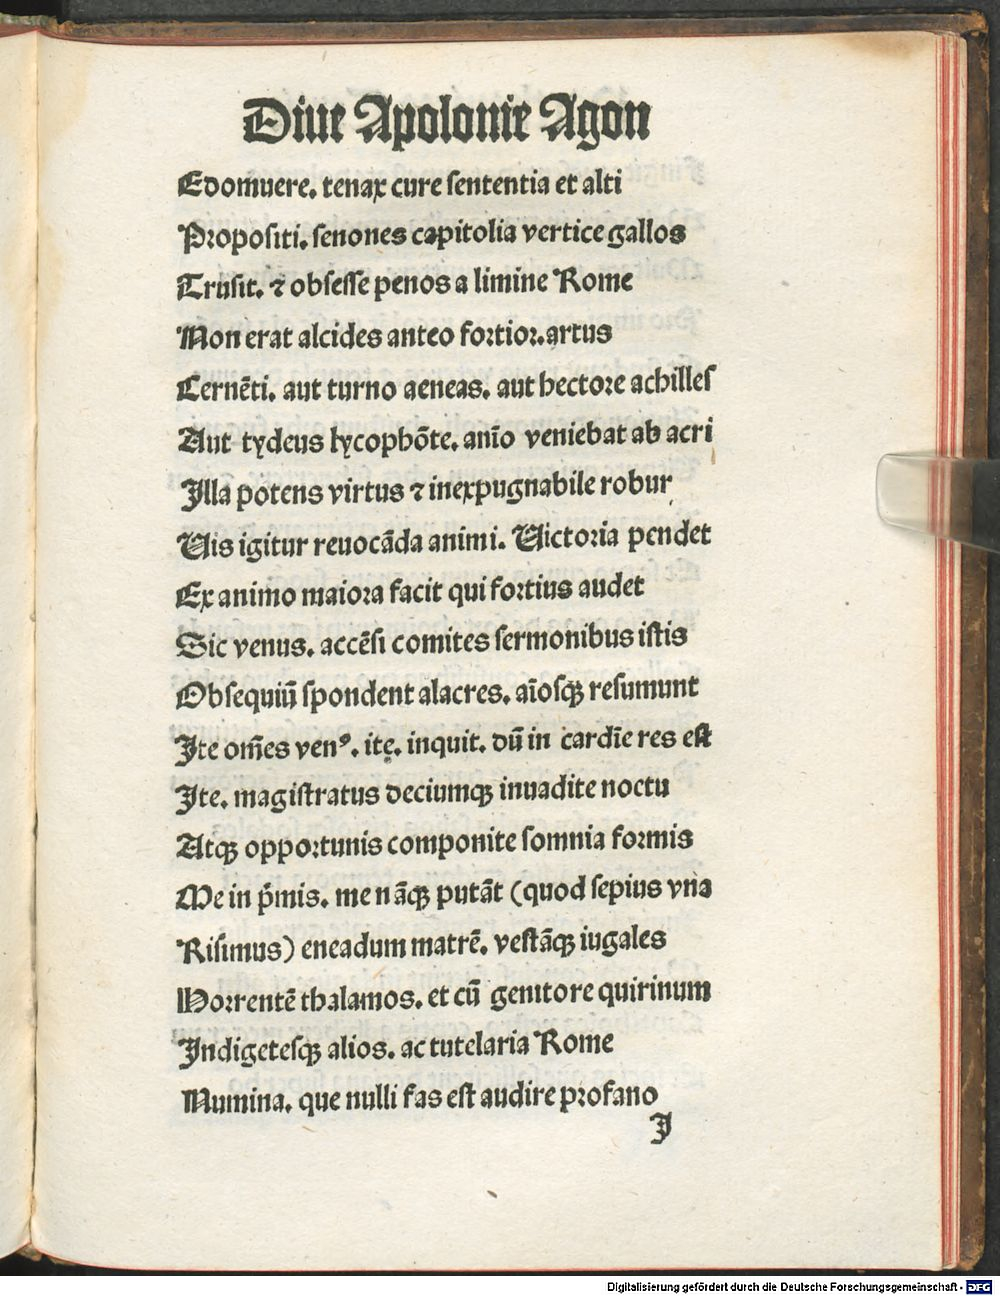 Diue Apolonie Agon
Edomuere. tenax cure sententia et alti
Propositi. senones capitolia vertice gallos
Trusit. ⁊ obsesse penos a limine Rome
Non erat alcides anteo fortior. artus
Cernēti. aut turno aeneas. aut hectore achilles
Aut tydeus lycophōte. anīo veniebat ab acri
Illa potens virtus ⁊ inexpugnabile robur
Uis igitur reuocāda animi. Uictoria pendet
Ex animo maiora facit qui fortius audet
Sic venus. accēsi comites sermonibus istis
Obsequiū spondent alacres. aīosqꝫ resumunt
Ite om̄es venꝰ. ite. inquit. dū in cardīe res est
Ite. magistratus deciumqꝫ inuadite noctu
Atqꝫ opportunis componite somnia formis
Me in p̄mis. me nāqꝫ putāt (quod sepius vna
Risimus) eneadum matrē. vestāqꝫ iugales
Horrentē thalamos. et cū genitore quirinum
Indigetesqꝫ alios. ac tutelaria Rome
Numina. que nulli fas est audire profano
I
Digitalisierung gefördert durch die Deutsche Forschungsgemeinschaft - DFG